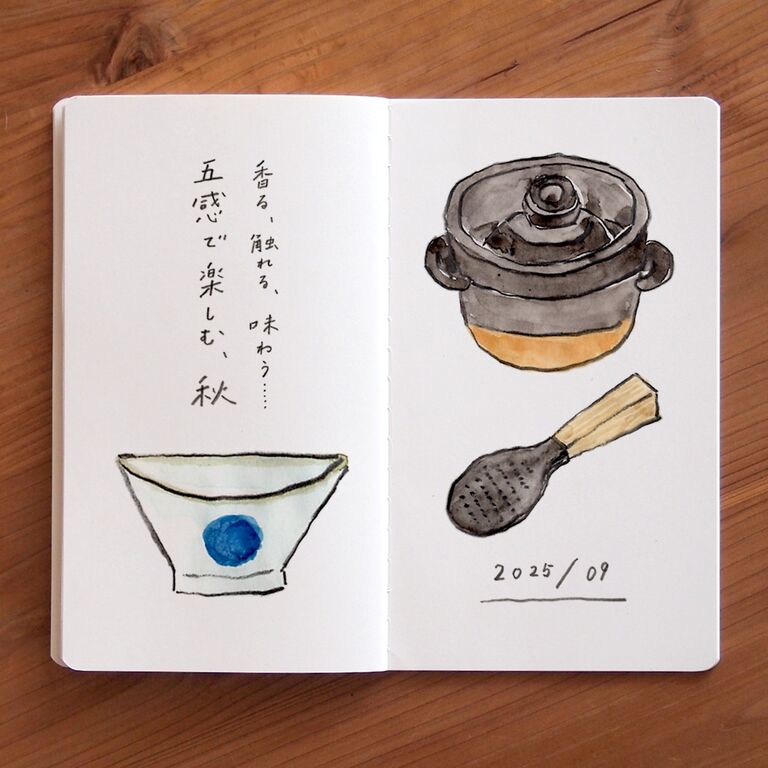 香る、触れる、味わう……
五感で楽しむ、秋
2025/09